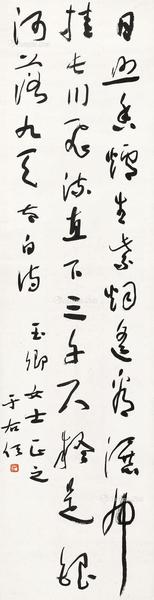 日照香爐生紫烟遙看瀑布
挂長川飛流直下三千尺疑是銀
河落九天 太白詩
玉卿女士正之
于右任